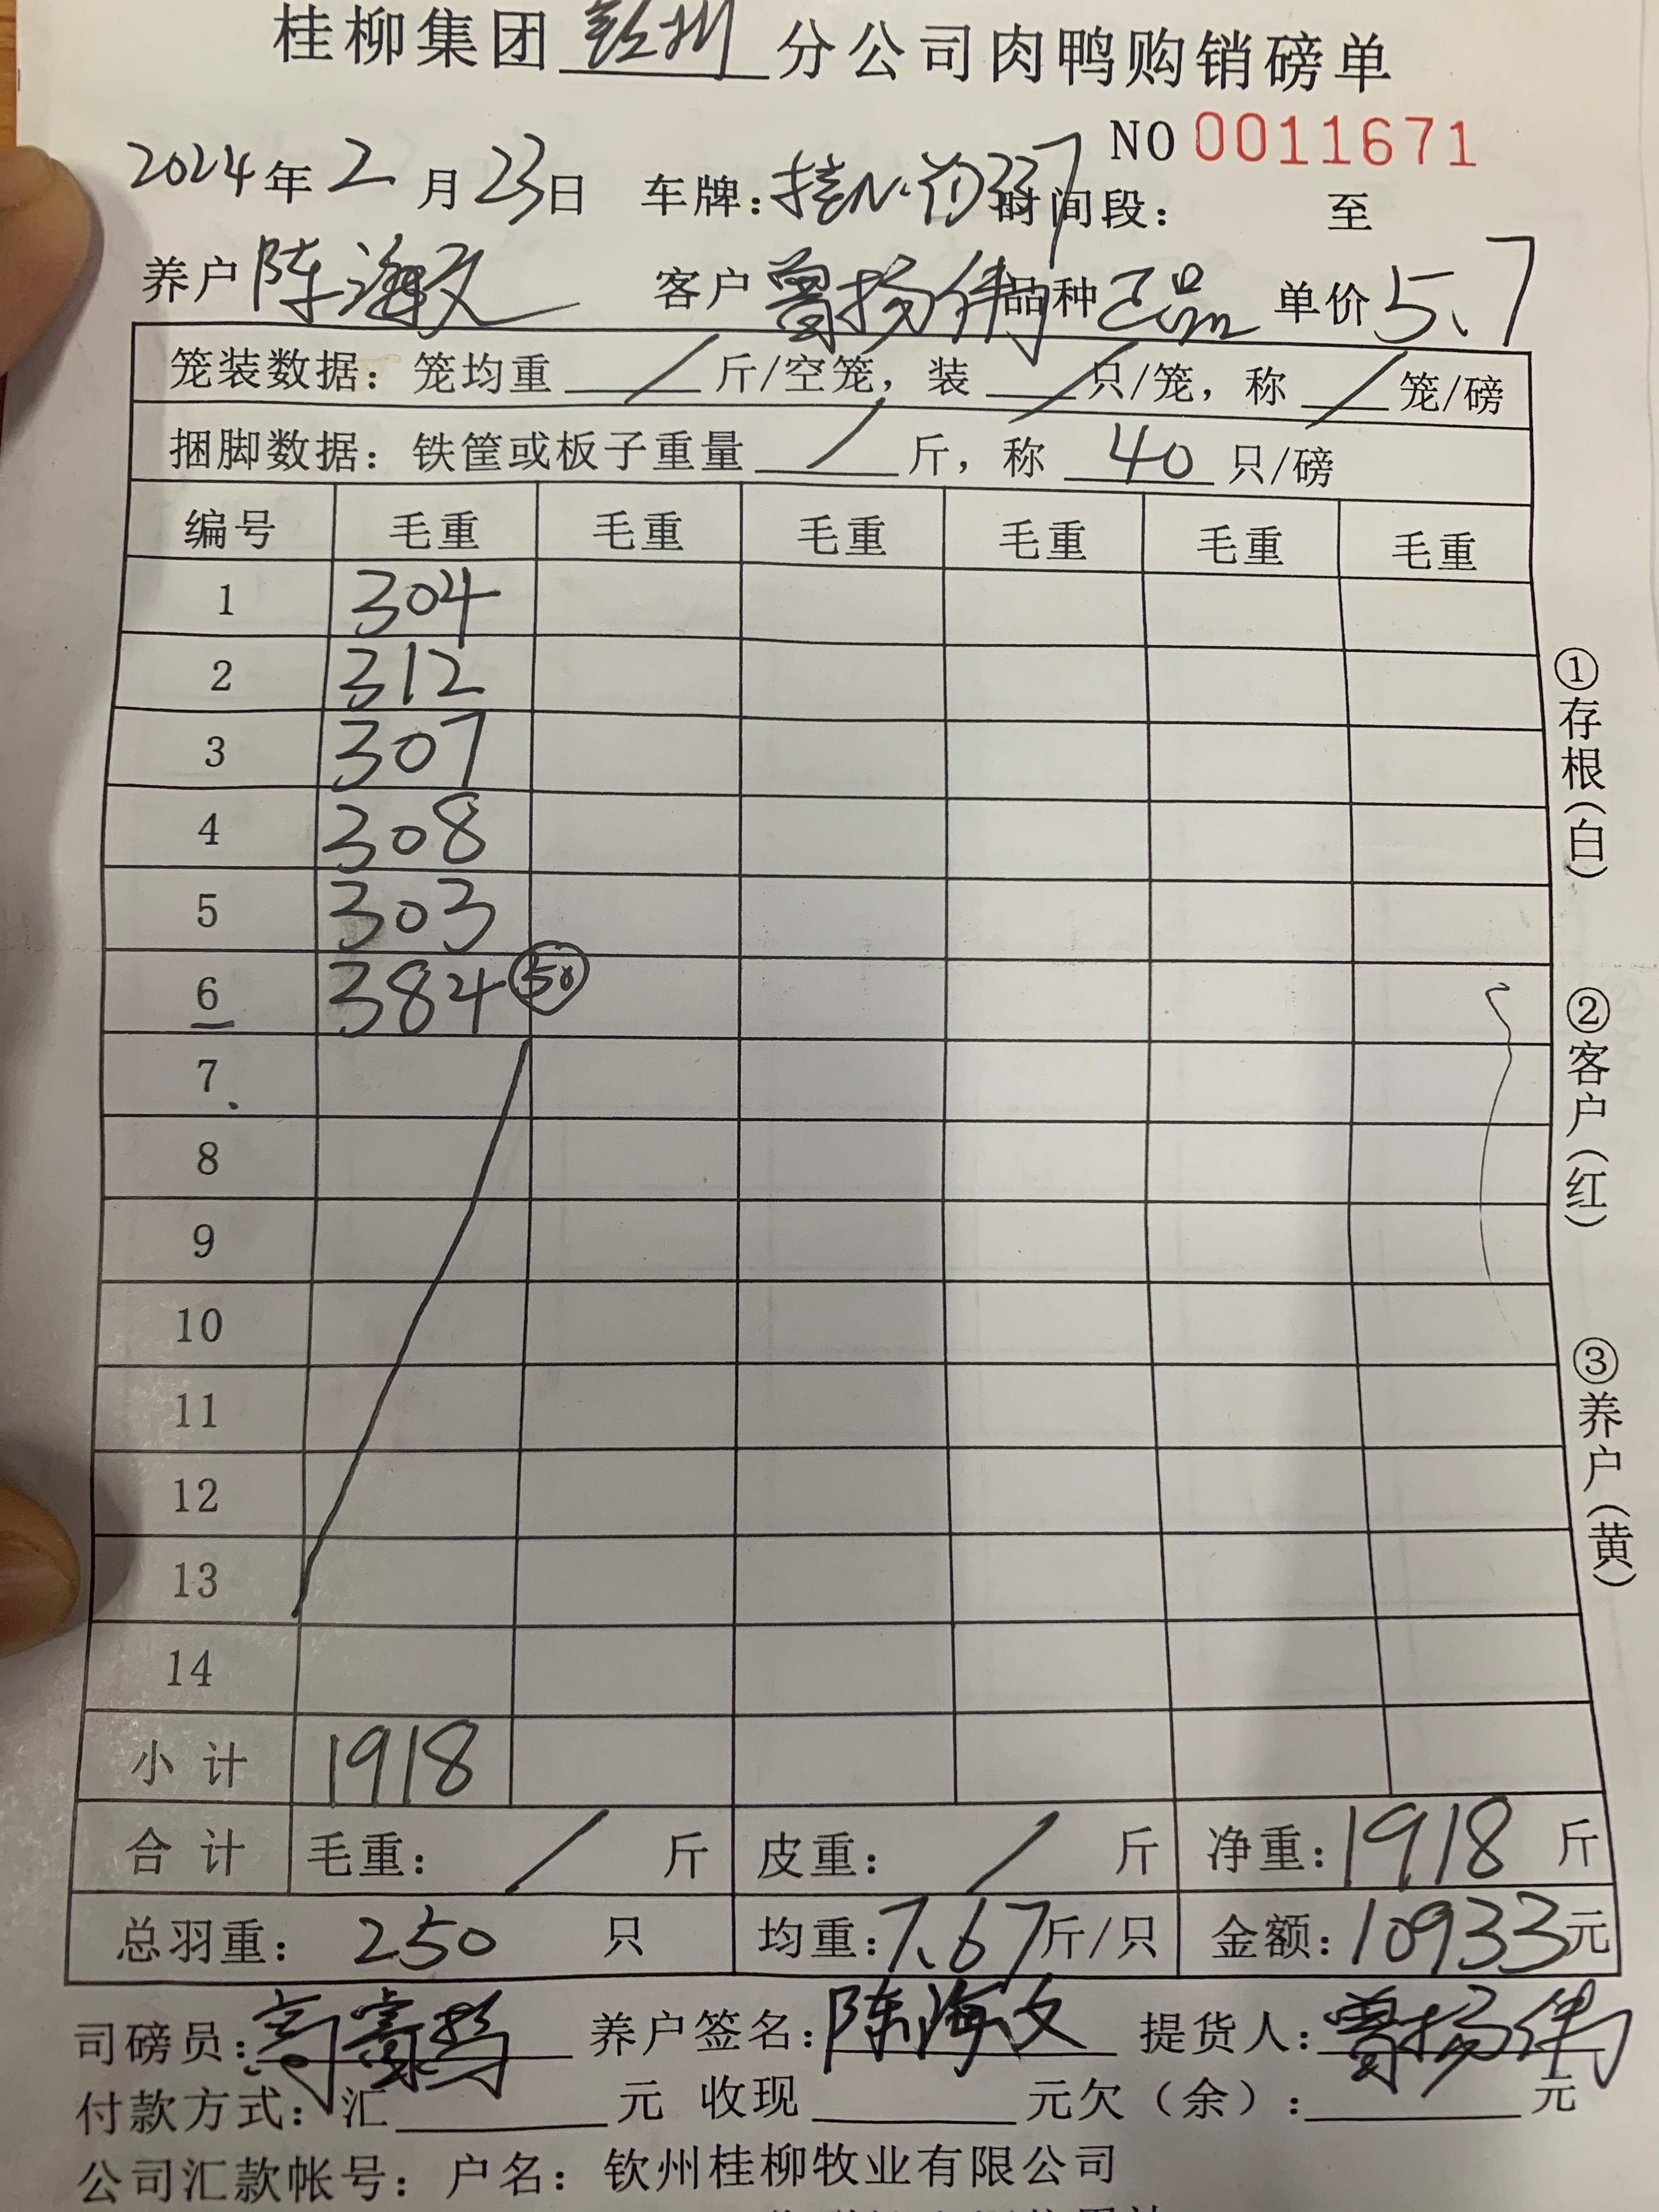 桂柳集团 钦州 分公司肉鸭购销磅单
NO 0011671
2024年2月23日 车牌: 桂N 337 时间段: 至
养户 陈海文 客户 曾扬伟 品种 正品 单价 5.7
笼装数据: 笼均重 / 斤/空笼, 装 / 只/笼, 称 / 笼/磅
捆脚数据: 铁筐或板子重量 / 斤, 称 40 只/磅
编号 毛重 毛重 毛重 毛重 毛重 毛重
1 304
2 312
3 307
4 308
5 303
6 384 50
7
8
9
10
11
12
13
14
小计 1918
合计 毛重: / 斤 皮重: / 斤 净重: 1918 斤
总羽重: 250 只 均重: 7.67 斤/只 金额: 10933元
司磅员: 养户签名: 陈海文 提货人: 曾扬伟
付款方式: 汇 元 收现 元欠(余): 元
公司汇款帐号: 户名: 钦州桂柳牧业有限公司
①存根(白)
②客户(红)
③养户(黄)